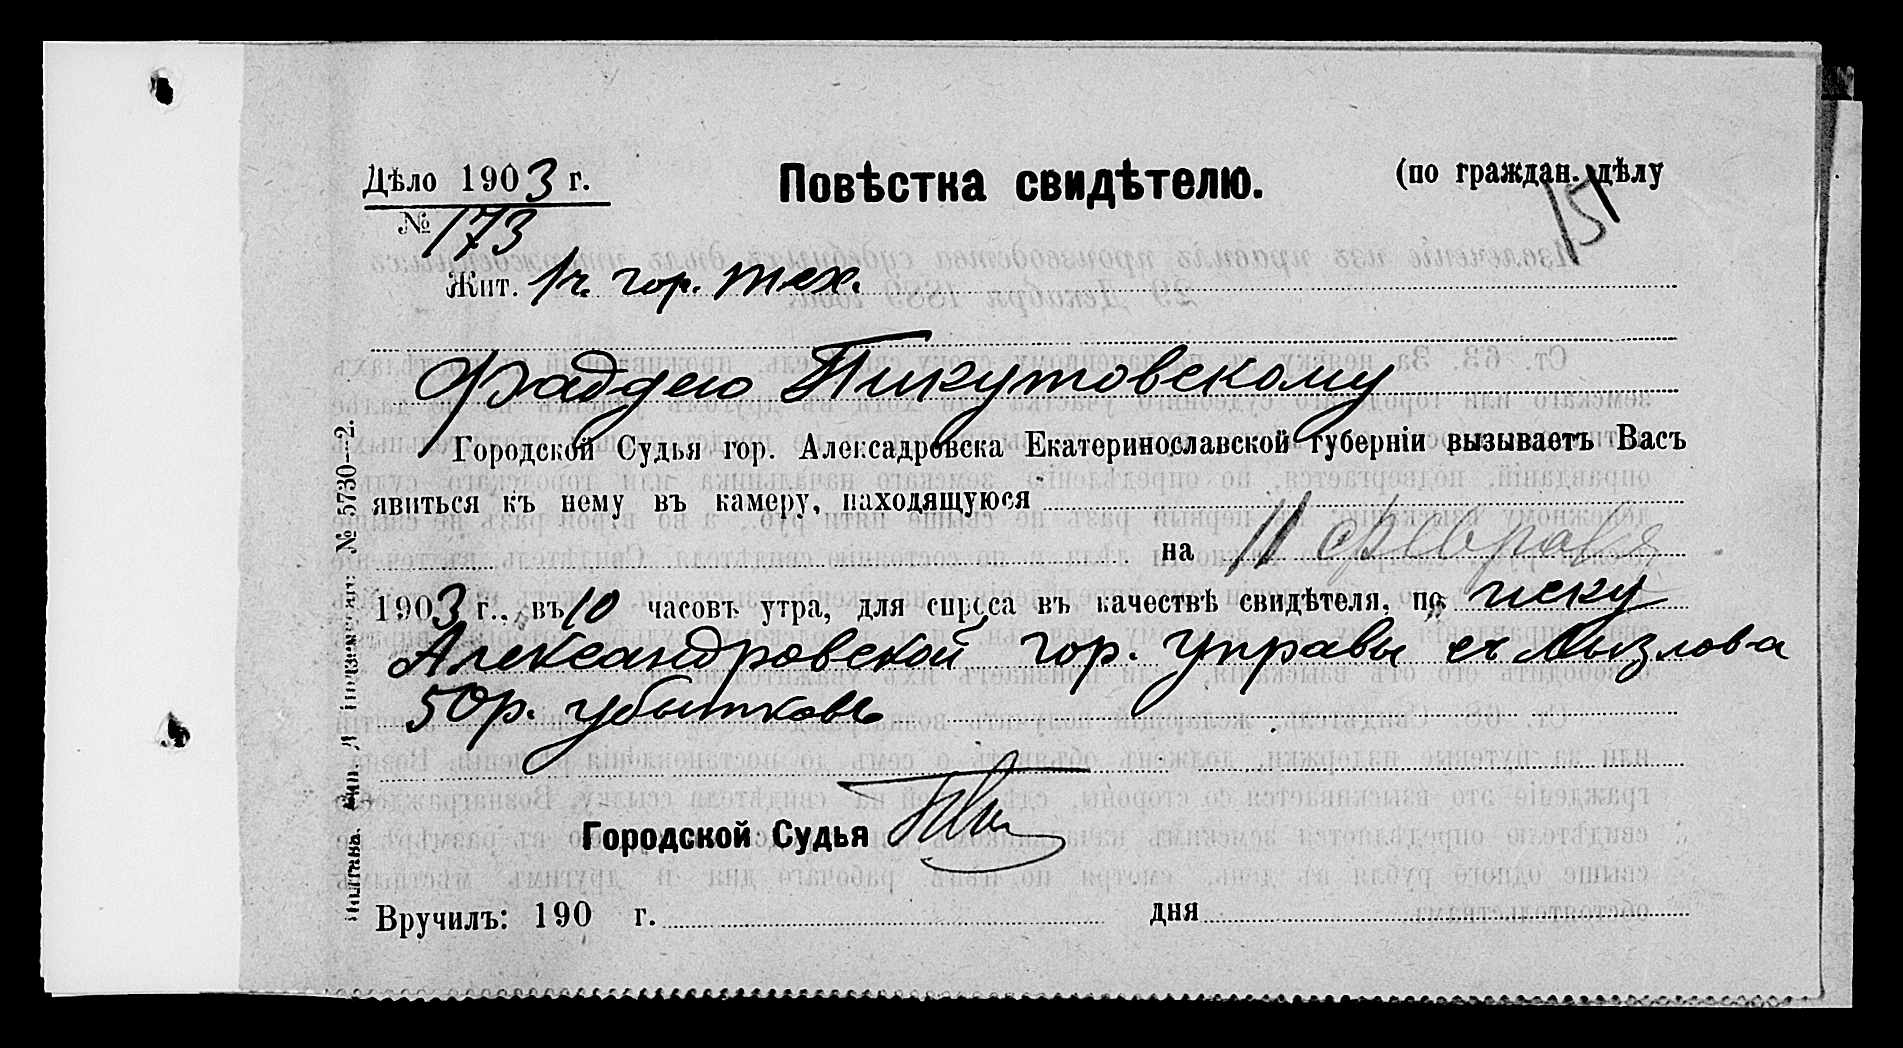 Дѣло 1903 г.
Повѣстка свидѣтелю.
(по граждан. дѣлу
151
№ 173
Жит. 1ч. гор. тех.
Фаддею Пикутовскому
Городской Судья гор. Алексадровска Екатеринославской губерніи вызываетъ Васъ
явиться къ нему въ камеру, находящуюся
на 11 февраля
1903 г., въ 10 часовъ утра, для спроса въ качествѣ свидѣтеля, по иску
Александровской гор. Управы съ Мызлова
50 р. убытковъ
Городской Судья
Вручилъ: 190 г. дня
№ 5730—2.